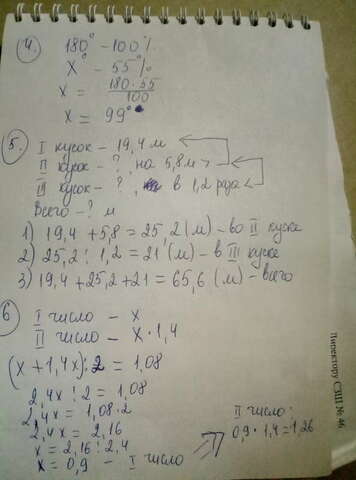 4.
180° - 100%
x° - 55%
x = 180·55/100
x = 99°
5.
I кусок - 19,4 м
II кусок - ?, на 5,8 м >
III кусок - ?, в 1,2 раза <
Всего - ? м
1) 19,4 + 5,8 = 25,2 (м) - во II куске
2) 25,2 : 1,2 = 21 (м) - в III куске
3) 19,4 + 25,2 + 21 = 65,6 (м) - всего
6
I число - x
II число - x · 1,4
(x + 1,4x) : 2 = 1,08
2,4x : 2 = 1,08
2,4x = 1,08 · 2
2,4x = 2,16
x = 2,16 : 2,4
x = 0,9 - I число
II число:
0,9 · 1,4 = 1,26
Директору СЗШ № 46